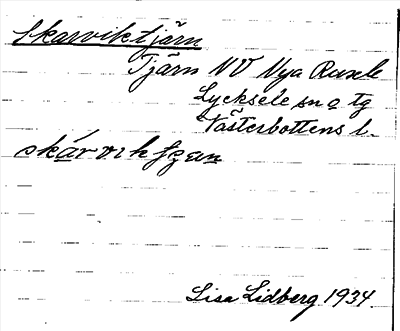 Skarviktjärn
Tjärn NV Nya Rusele
Lycksele sn o tg
Västerbottens l.
Lisa Lidberg 1934.